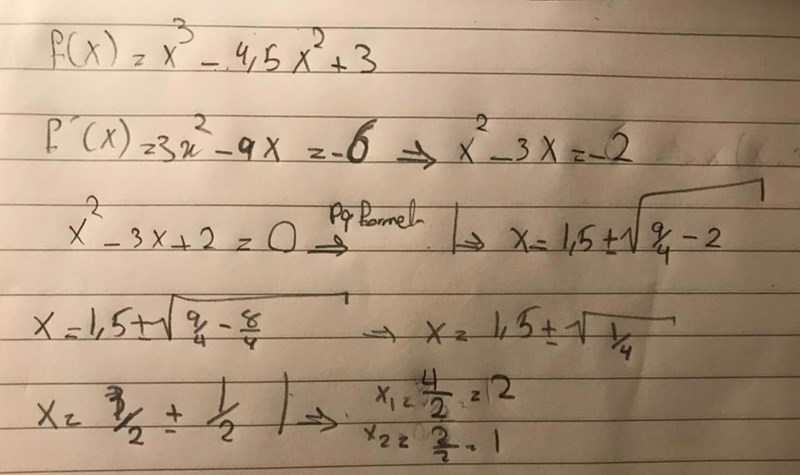 f(x) = x³ - 4,5x² + 3
f'(x) = 3x² - 9x = -6 ⇒ x² - 3x = -2
x² - 3x + 2 = 0 ⇒ Pq formel |⇒ x = 1,5 ± √(9/4 - 2)
x = 1,5 ± √(9/4 - 8/4) ⇒ x = 1,5 ± √(1/4)
x = 3/2 ± 1/2 |⇒ x₁ = 4/2 = 2
x₂ = 2/2 = 1